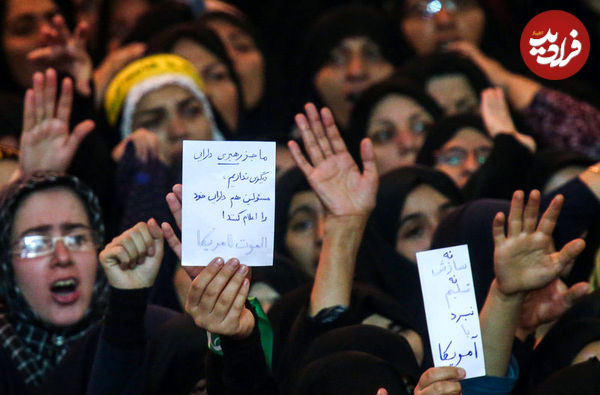 ما جز رهبری داران
دیگری نداریم،
مسئولین هم داران خود
را اعلام کنند!
الموت لامریکا
نه
سازش
نه
تسلیم
نبرد
با
آمریکا
فرادید
اخبار